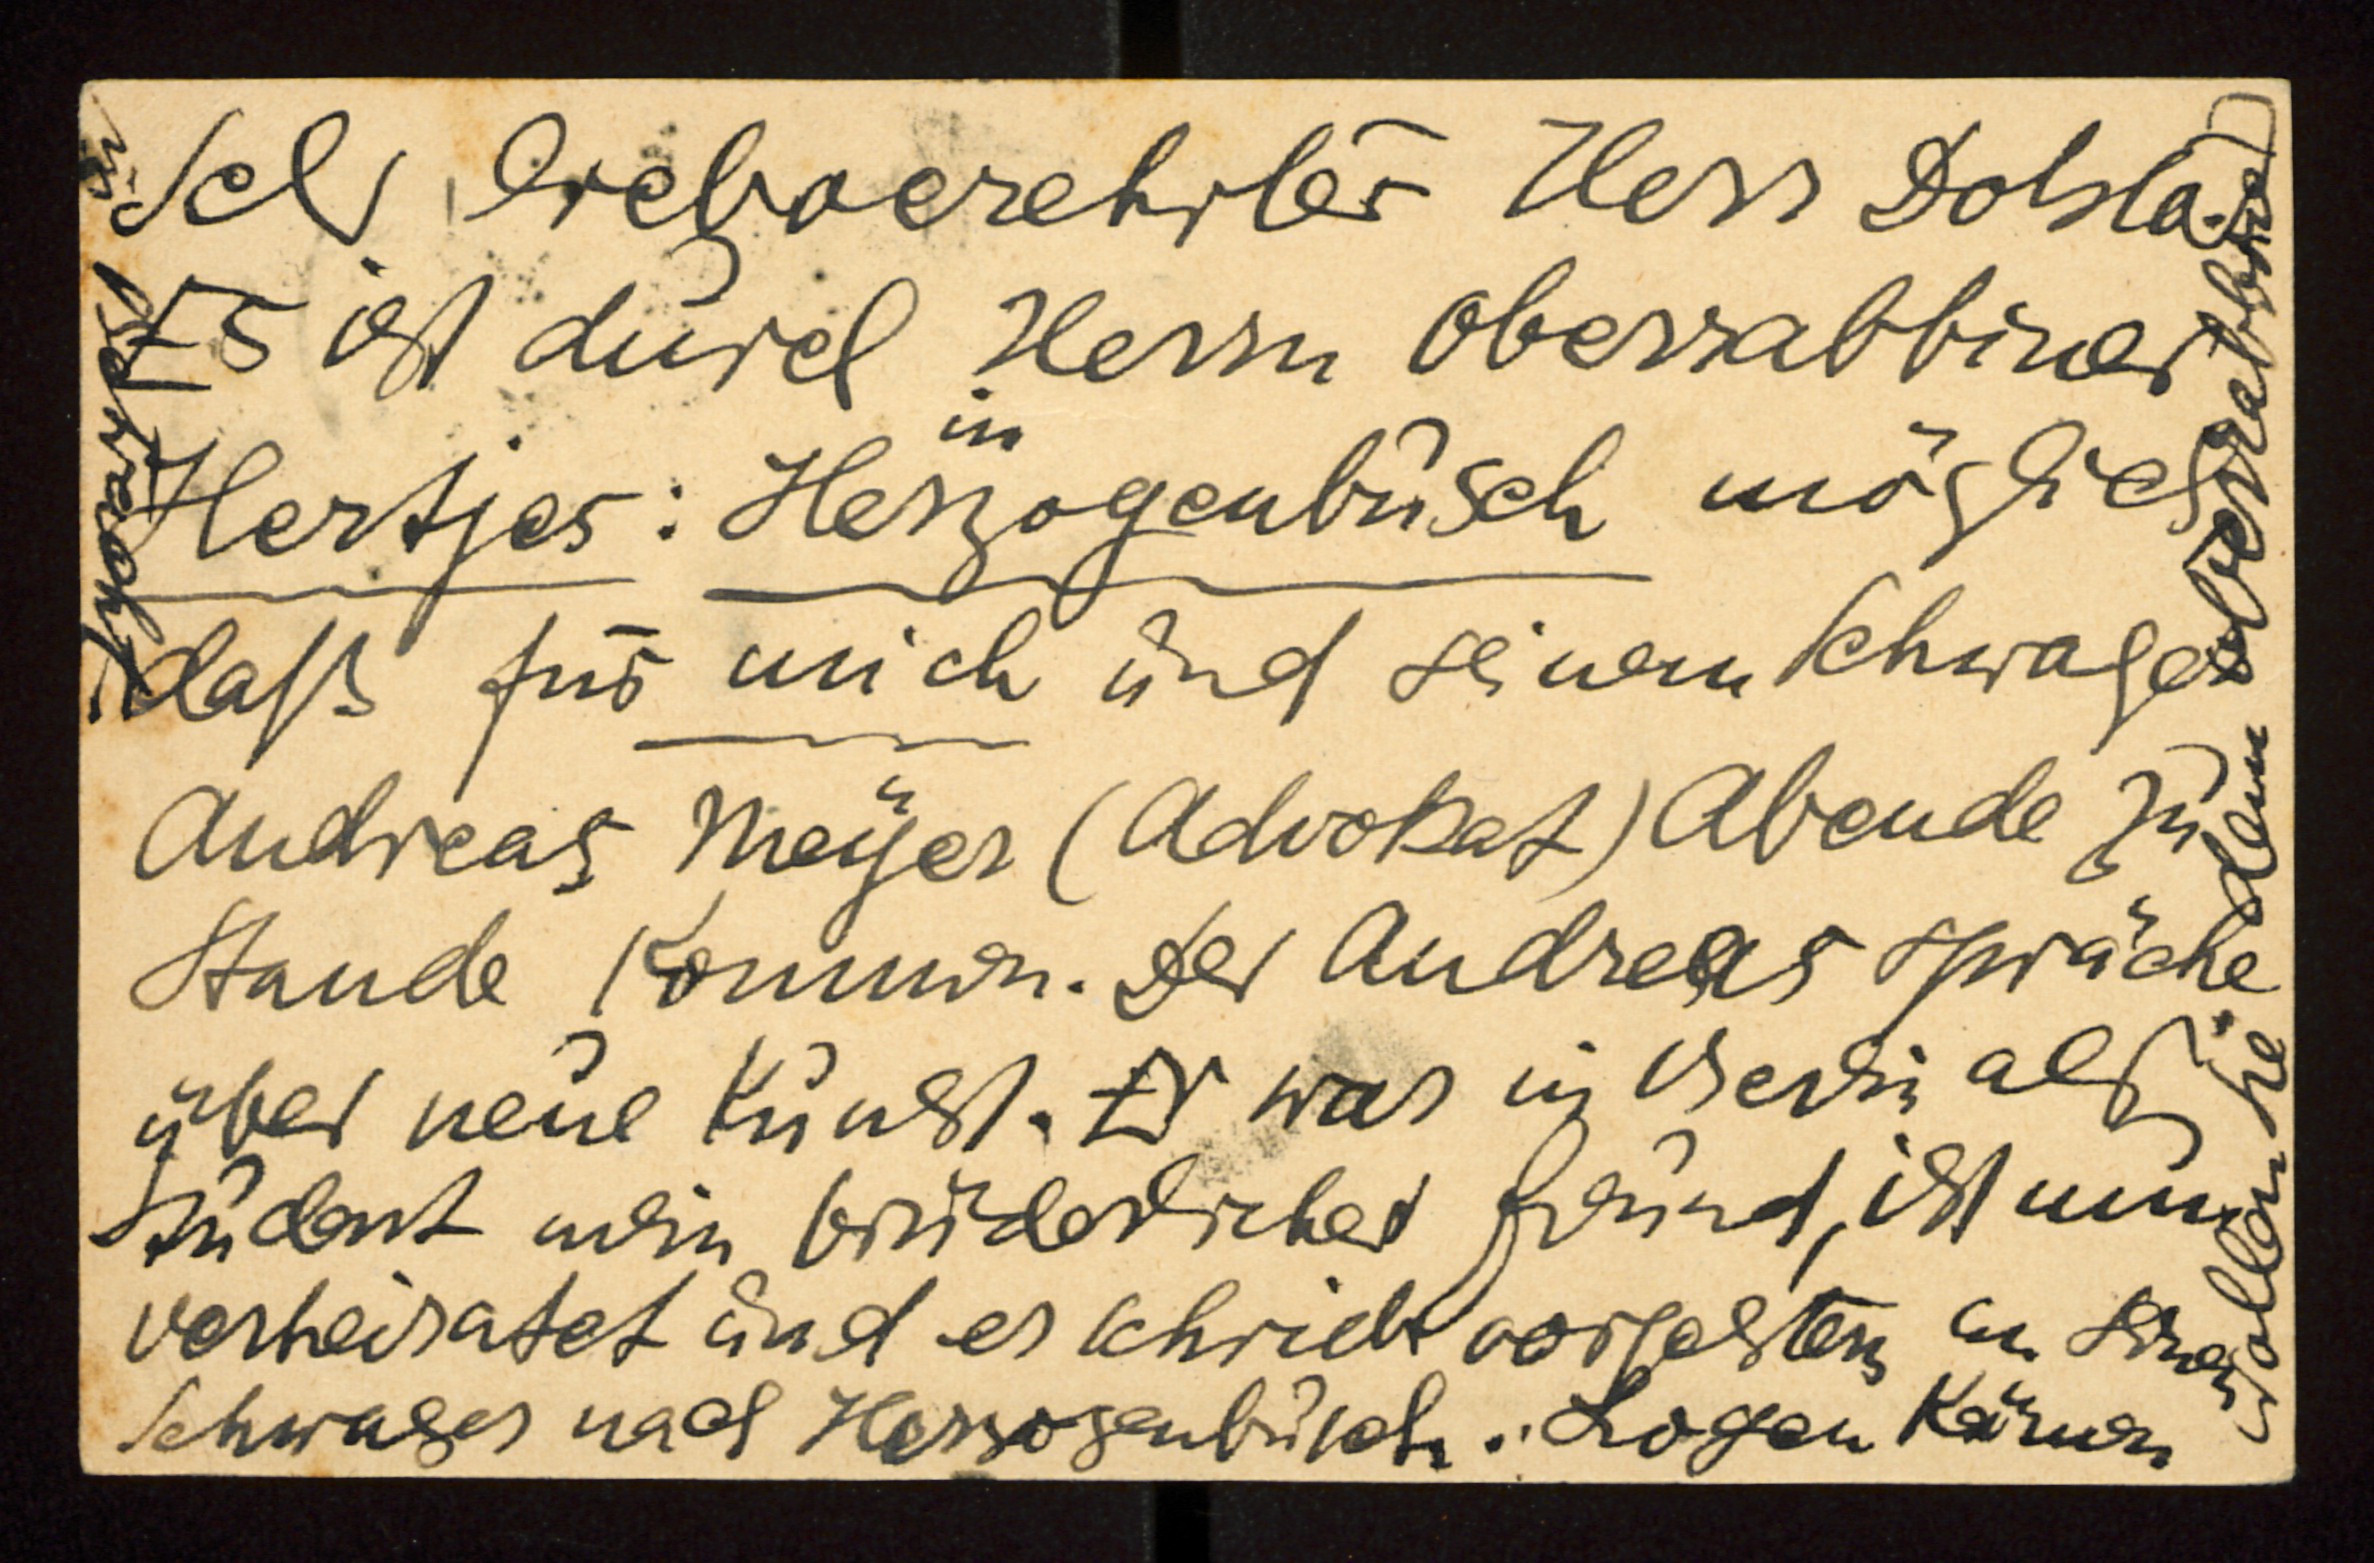 Sehr lieboerehrter Herr Doktor.
Es ist durch Herrn Oberrabbiner
Hertjes: in Herzogenbusch möglich
daß für mich und seinem Schwager
Andreas Meÿer (Advokat) Abende zu
Stande kommen. Der Andreas spräche
über neue Kunst. Er war in Berlin als
Student mein brüderlicher Freund, ist nun
verheiratet und er schrieb vorgestern an seinen
Schwager nach Herzogenbusch. Logen kämen
wollen Sie dem Oberrabbiner
in Betracht.